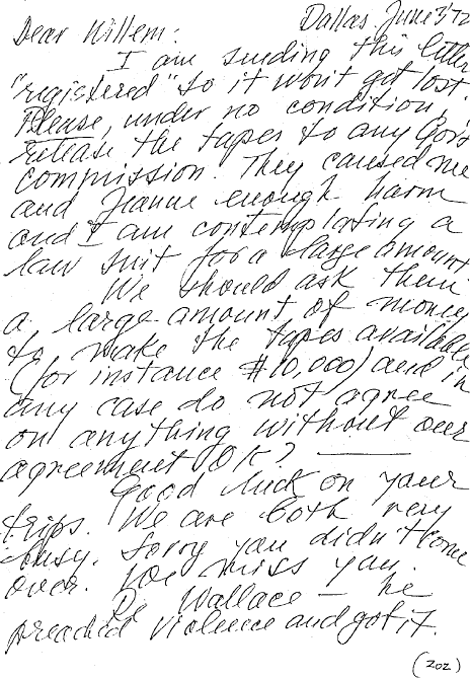 Dallas, June 3 '72
Dear Willem:
I am sending this letter
"registered" so it won't get lost.
Please, under no condition,
release the tapes to any Gov's
commission. They caused me
and Jeanne enough harm
and I am contemplating a
law suit for a large amount
We should ask them
a large amount of money
to make the tapes available
(for instance $10,000) and in
any case do not agree
on anything without our
agreement OK? —
Good luck on your
trips. We are both very
busy. Sorry you didn't come
over. We miss you.
Re Wallace — he
preached violence and got it.
(202)